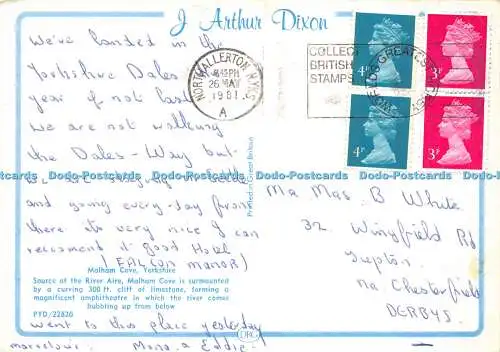 J Arthur Dixon
We've landed in the
Yorkshire Dales
year if not last
we are not walking
the Dales-Way but
we are staying in Settle
and going every-day from
there its very nice I can
reccoment it good Hotel
(FALCON MANOR)
Malham Cove, Yorkshire
Source of the River Aire, Malham Cove is surmounted
by a curving 300 ft. cliff of limestone, forming a
magnificent amphitheatre in which the river comes
bubbling up from below
PYD/22826
went to this place yesterday
marvelous. Mona & Eddie
DRG
Printed in Great Britain
NORTHALLERTON N.YKS
8.45PM
26 MAY
1981
A
COLLECT
BRITISH
STAMPS
4P
3P
4P
3P
Mr Mrs. B White
32 Wingfield Rd
Tupton
Nr Chesterfield
DERBYS.
Dodo-Postcards Dodo-Postcards Dodo-Postcards